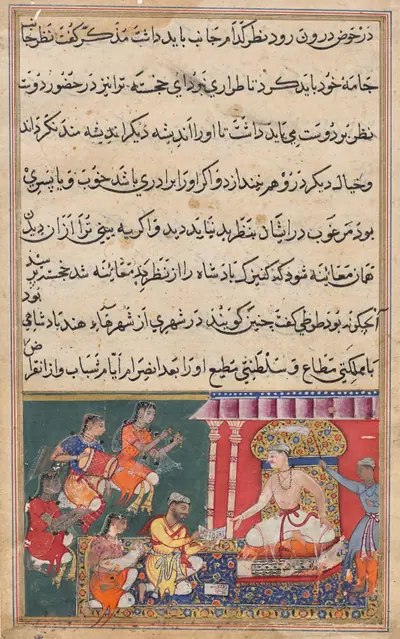 در حوض درون رود نظر کدام جانب باید داشت مذکر گفت نظر
جامه خود باید کرد تا طراری نبرد ای خجسته ترا نیز در حضور دوست
نظر بر دوست می باید داشت تا او را اندیشه دیکر اندیشه مند نکرداند
و خیال دیکر در وهم نیندازد و اکر او را برادری باشد خوب و یا پسری
بود مرغوب در ایشان بنظر بد نباید دید و اکر به بینی ترا از ان دیدن
همان معاینه شود که کنیزک بادشاه را از نظر بد معاینه شد خجسته پرسید
آن چکونه بود طوطی کفت چنین کویند در شهری از شهرهاء هند بادشاهی بود
با مملکتی مطاع و سلطنتی مطیع او را بعد انصرام ایام شباب و انقراض